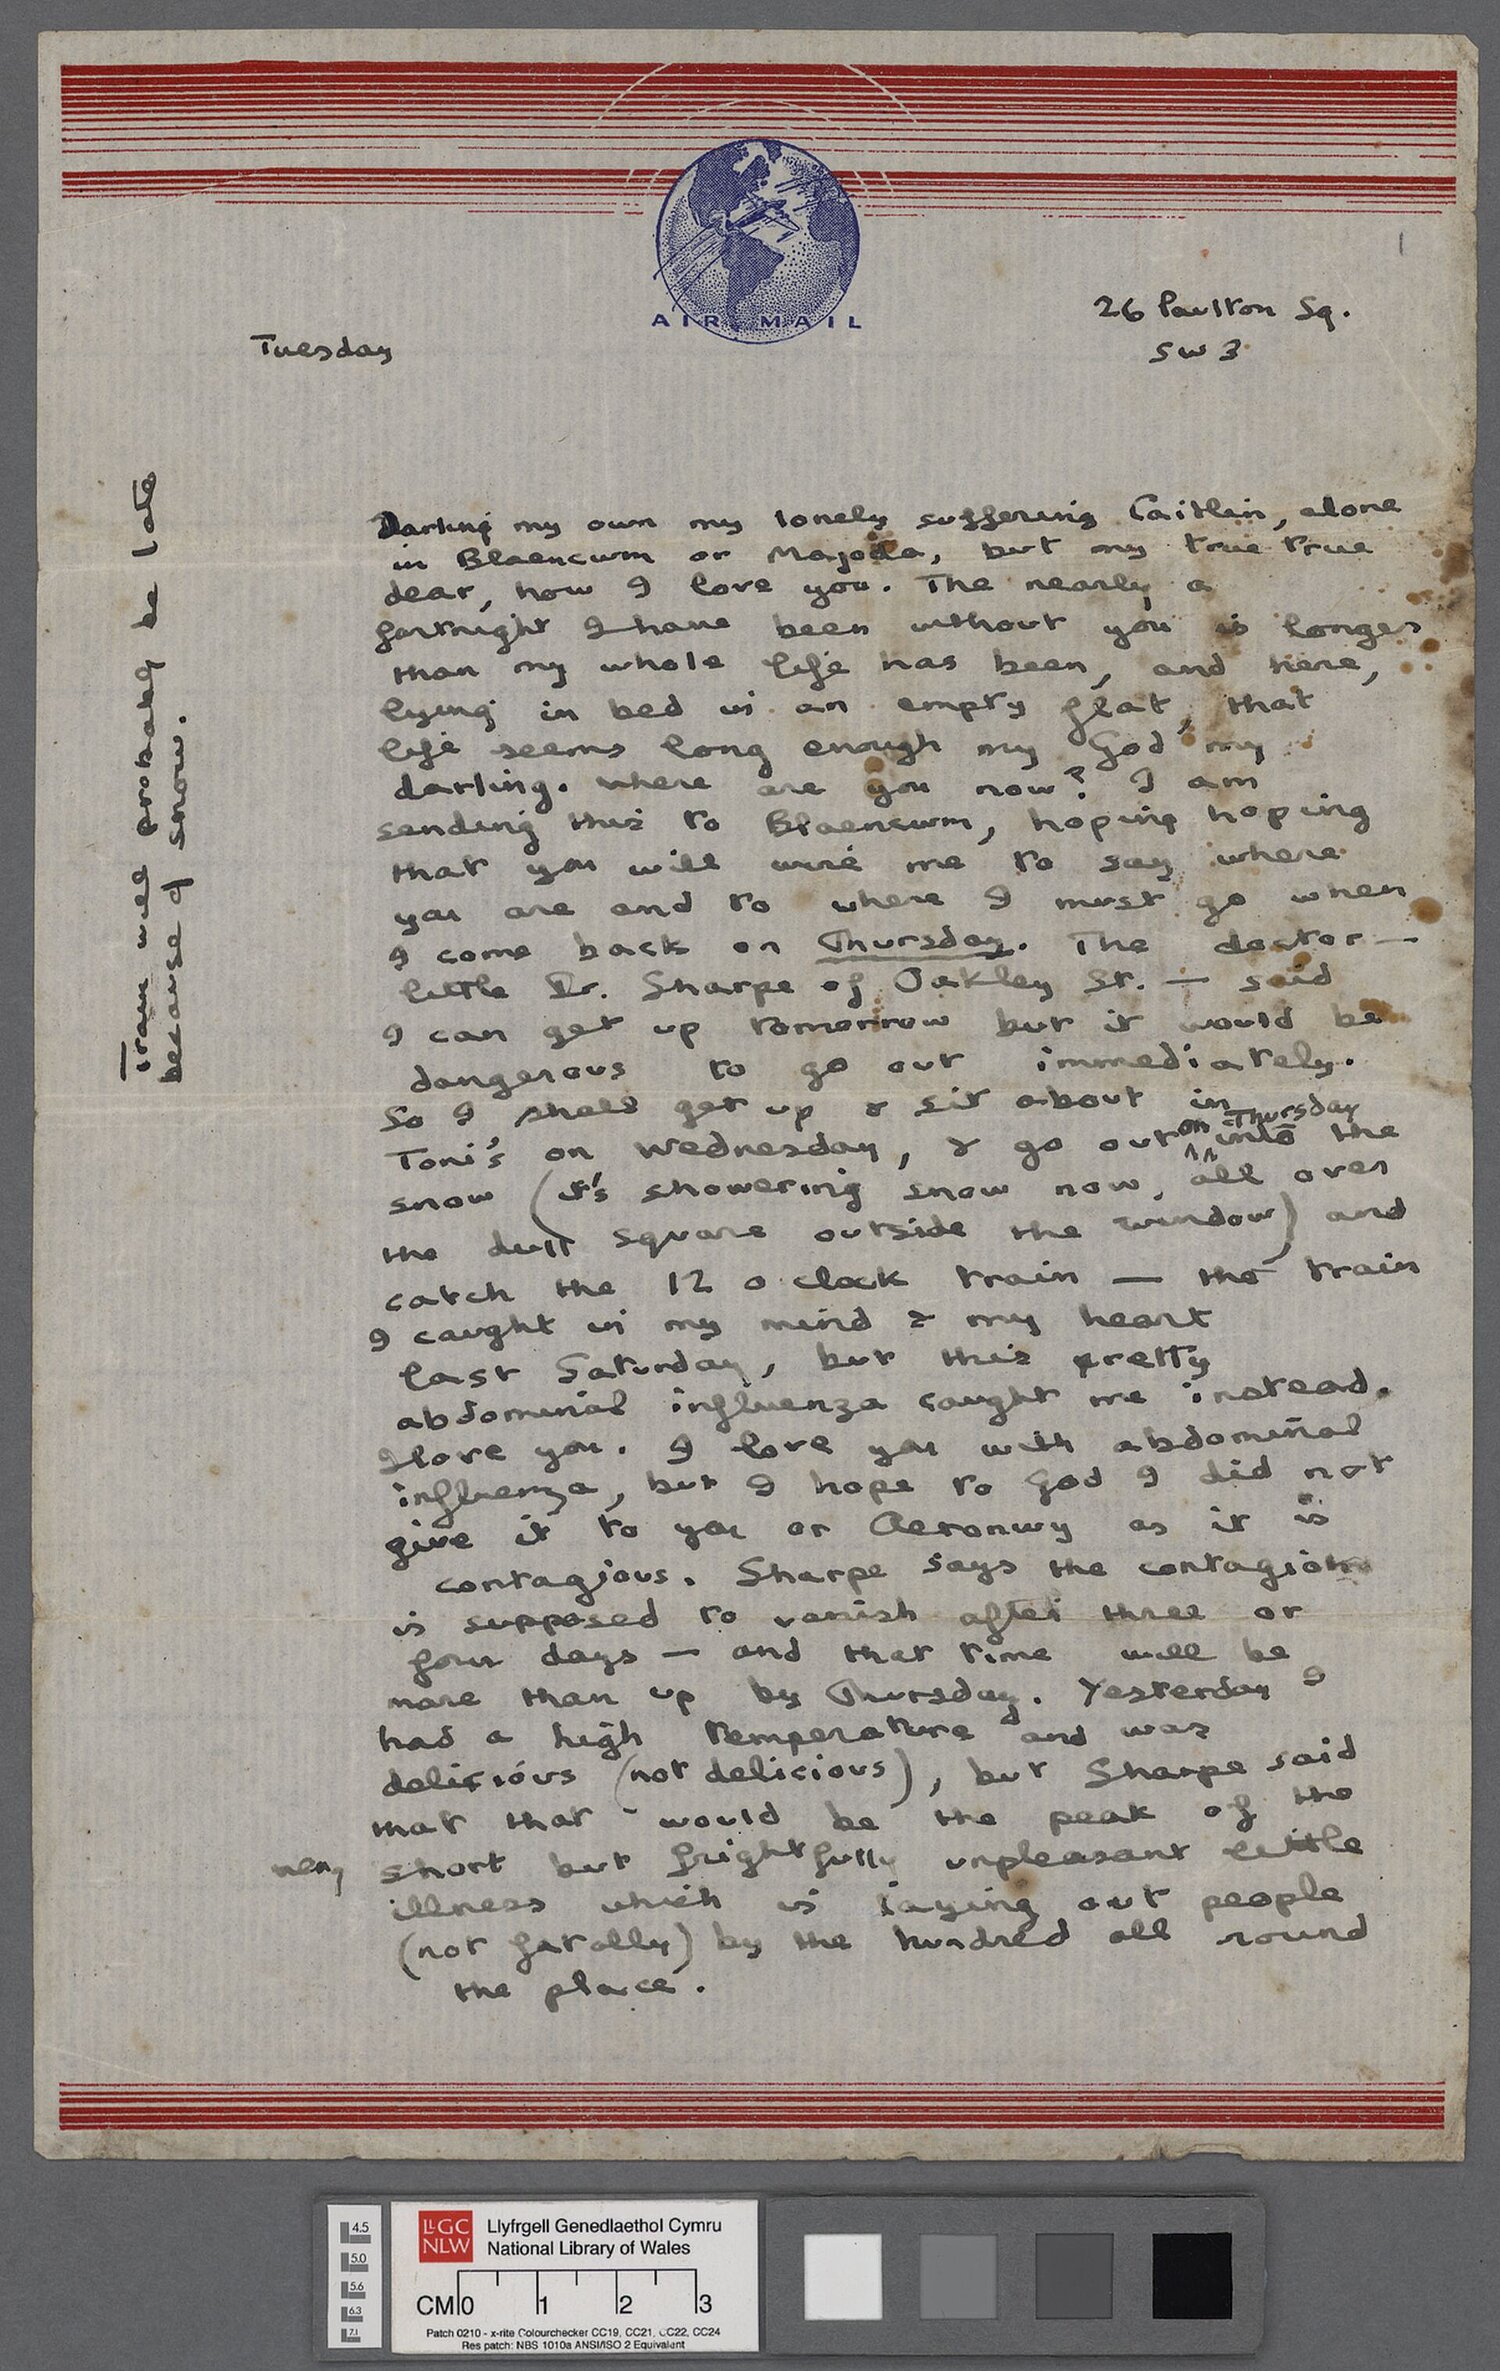 AIR MAIL
1
26 Paulton Sq.
SW3
Tuesday
Darling my own my lonely suffering Caitlin, alone
in Blaencwm or Majoda, but my true true
dear, how I love you. The nearly a
fortnight I have been without you is longer
than my whole life has been, and here,
lying in bed in an empty flat, that
life seems long enough my God my
darling. Where are you now? I am
sending this to Blaencwm, hoping hoping
that you will wire me to say where
you are and to where I must go when
I come back on Thursday. The doctor —
little Dr. Sharpe of Oakley St. — said
I can get up tomorrow but it would be
dangerous to go out immediately.
So I shall get up & sit about in
Toni's on Wednesday, & go out on Thursday into the
snow (it's showering snow now, all over
the dull square outside the window) and
catch the 12 o clock train — the train
I caught in my mind & my heart
last Saturday, but this pretty
abdominal influenza caught me instead.
I love you. I love you with abdominal
influenza, but I hope to God I did not
give it to you or Aeronwy as it is
contagious. Sharpe says the contagion
is supposed to vanish after three or
four days — and that time will be
more than up by Thursday. Yesterday I
had a high temperature and was
delirious (not delicious), but Sharpe said
that that would be the peak of the
very short but frightfully unpleasant little
illness which is laying out people
(not fatally) by the hundred all round
the place.
Train will probably be late
because of snow.
4.5
5.0
5.6
6.3
7.1
LLGC
NLW
Llyfrgell Genedlaethol Cymru
National Library of Wales
CM 0 1 2 3
Patch 0210 - x-rite Colourchecker CC19, CC21, CC22, CC24
Res patch: NBS 1010a ANSI/ISO 2 Equivalent